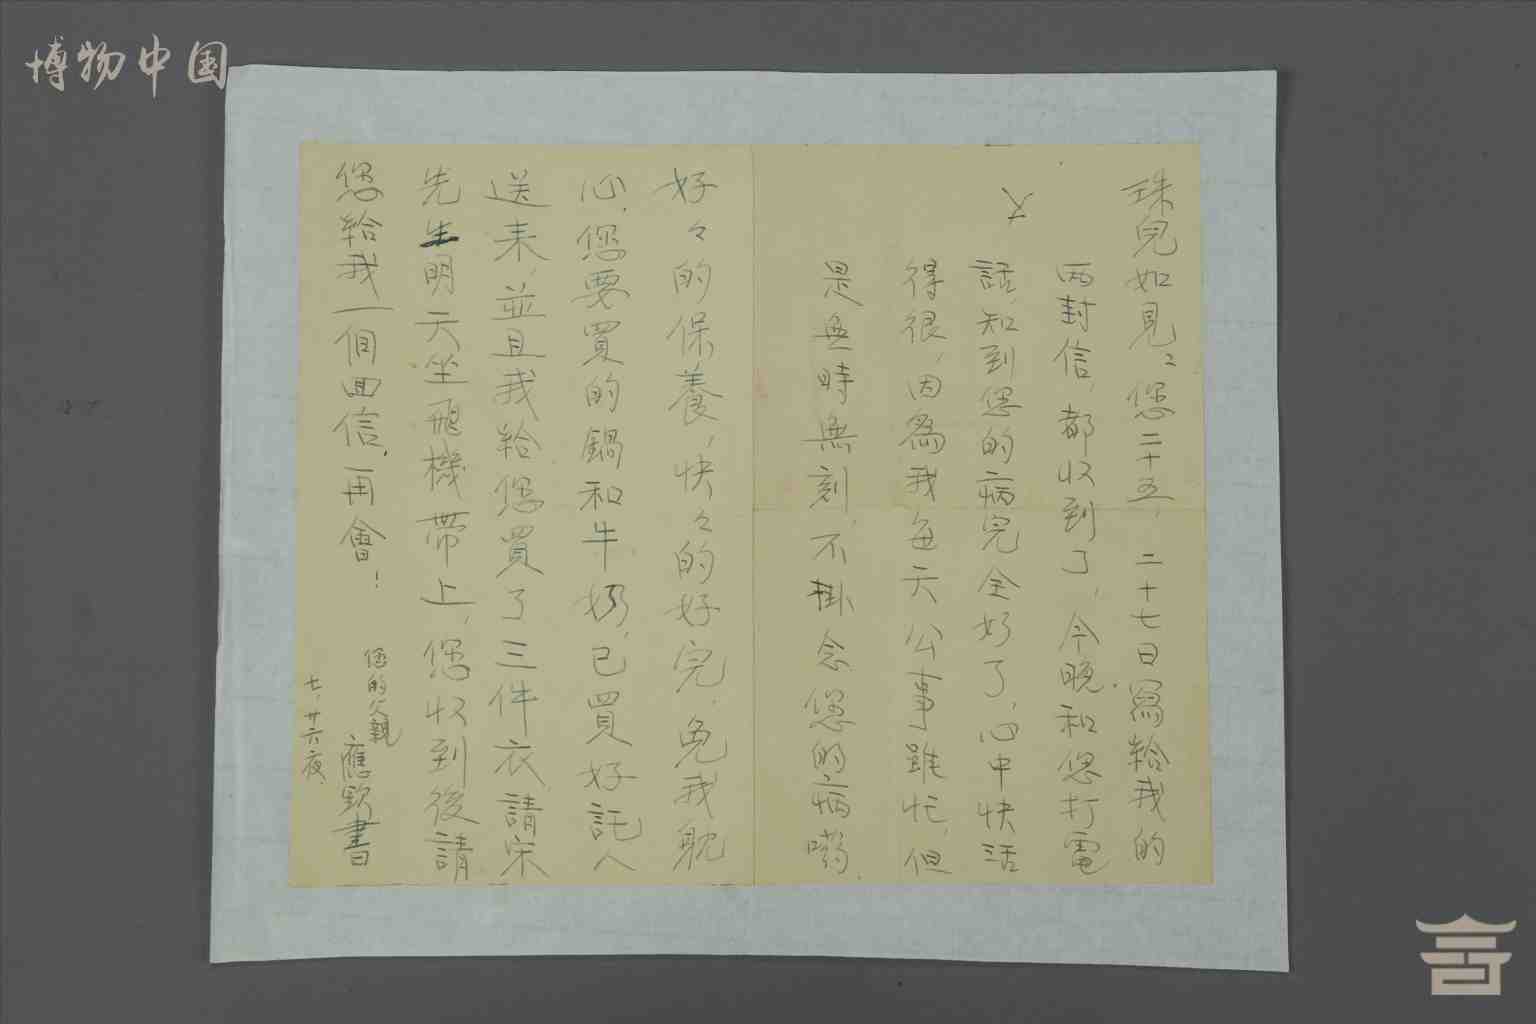 博物中国
珠兒如見：您二十五，二十七日寫給我的
兩封信，都收到了，今晚和您打電
話，知到您的病完全好了，心中快活
得很，因為我每天公事雖忙，但
是無時無刻，不掛念您的病喲．
好々的保養，快々的好完，免我耽
心，您要買的鍋和牛奶，已買好託人
送来，並且我給您買了三件衣，請宋
先生明天坐飛機帶上，您收到後請
您給我一個回信，再會！
您的父親
應欽書
七、廿六夜、